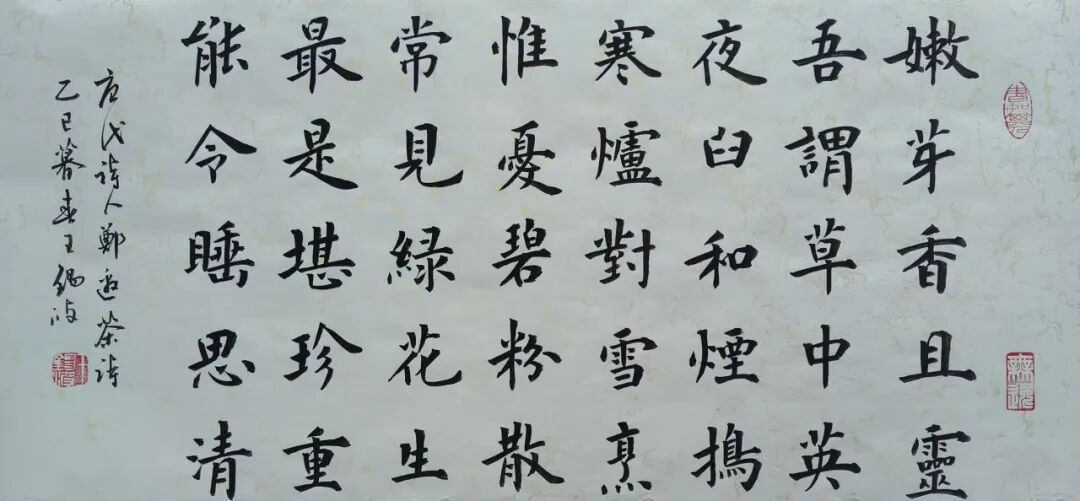 嫩芽香且靈
吾謂草中英
夜臼和煙搗
寒爐對雪烹
惟憂碧粉散
常見綠花生
最是堪珍重
能令睡思清
唐代詩人鄭遨茶詩
乙巳暮春王